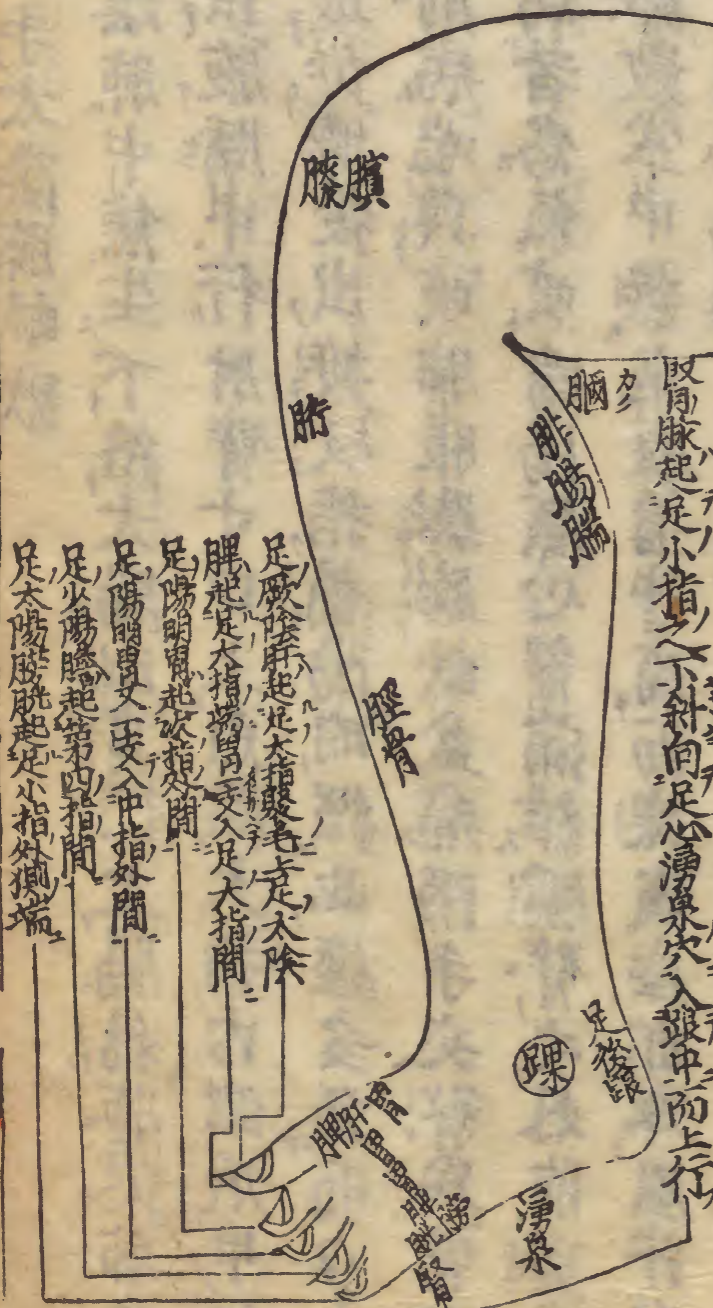 膝臏
胻
膕
カク
腓腸腨
脛骨
腎脉起足小指之下斜向足心湧泉穴入跟中而上行
足厥陰肝起足大指聚毛上足太陰
脾起足大指端胃一支入足大指間
足陽明胃起次指外間
足陽明胃又一支入中指外間
足少陽膽起第四指間
足太陽膀胱起足小指外側端
足後跟
踝
脾肝胃
胃胃膽膀胱
腎
湧泉